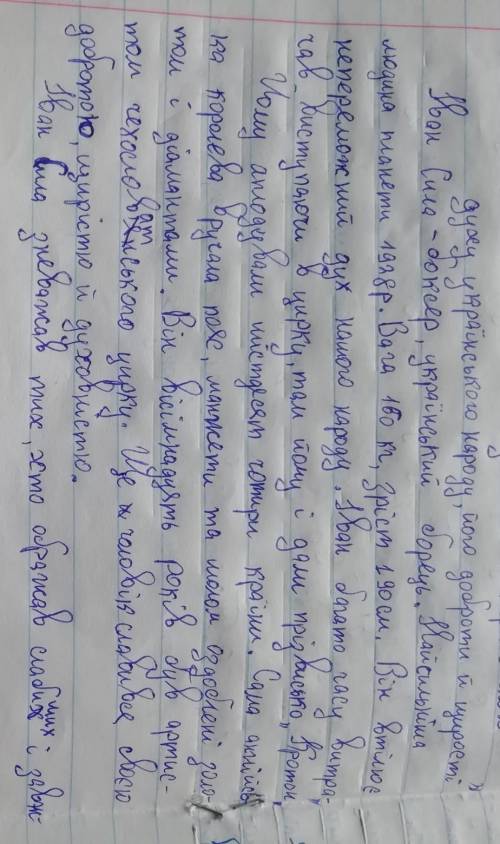 духу українського народу, його доброти й щирості
Іван Сила - боксер, український борець. Найсильніша
людина планети 1928р. Вага 160 кг, зріст 190см. Він втілює
непереможний дух нашого народу. Іван багато часу витра-
чав, виступаючи в цирку, там йому і дали прізвисько "Кротон"
Йому аплодували шістдесят чотири країни. Сама англійсь-
ка королева вручала пояс, манжети та шолом оздоблені золо-
том і діамантами. Він вісімнадцять років був артис-
том чехословатського цирку. Ще й чоловік славився своєю
добротою, щирістю й духовністю.
Іван Сила зневажав тих, хто ображав слабших і завж-